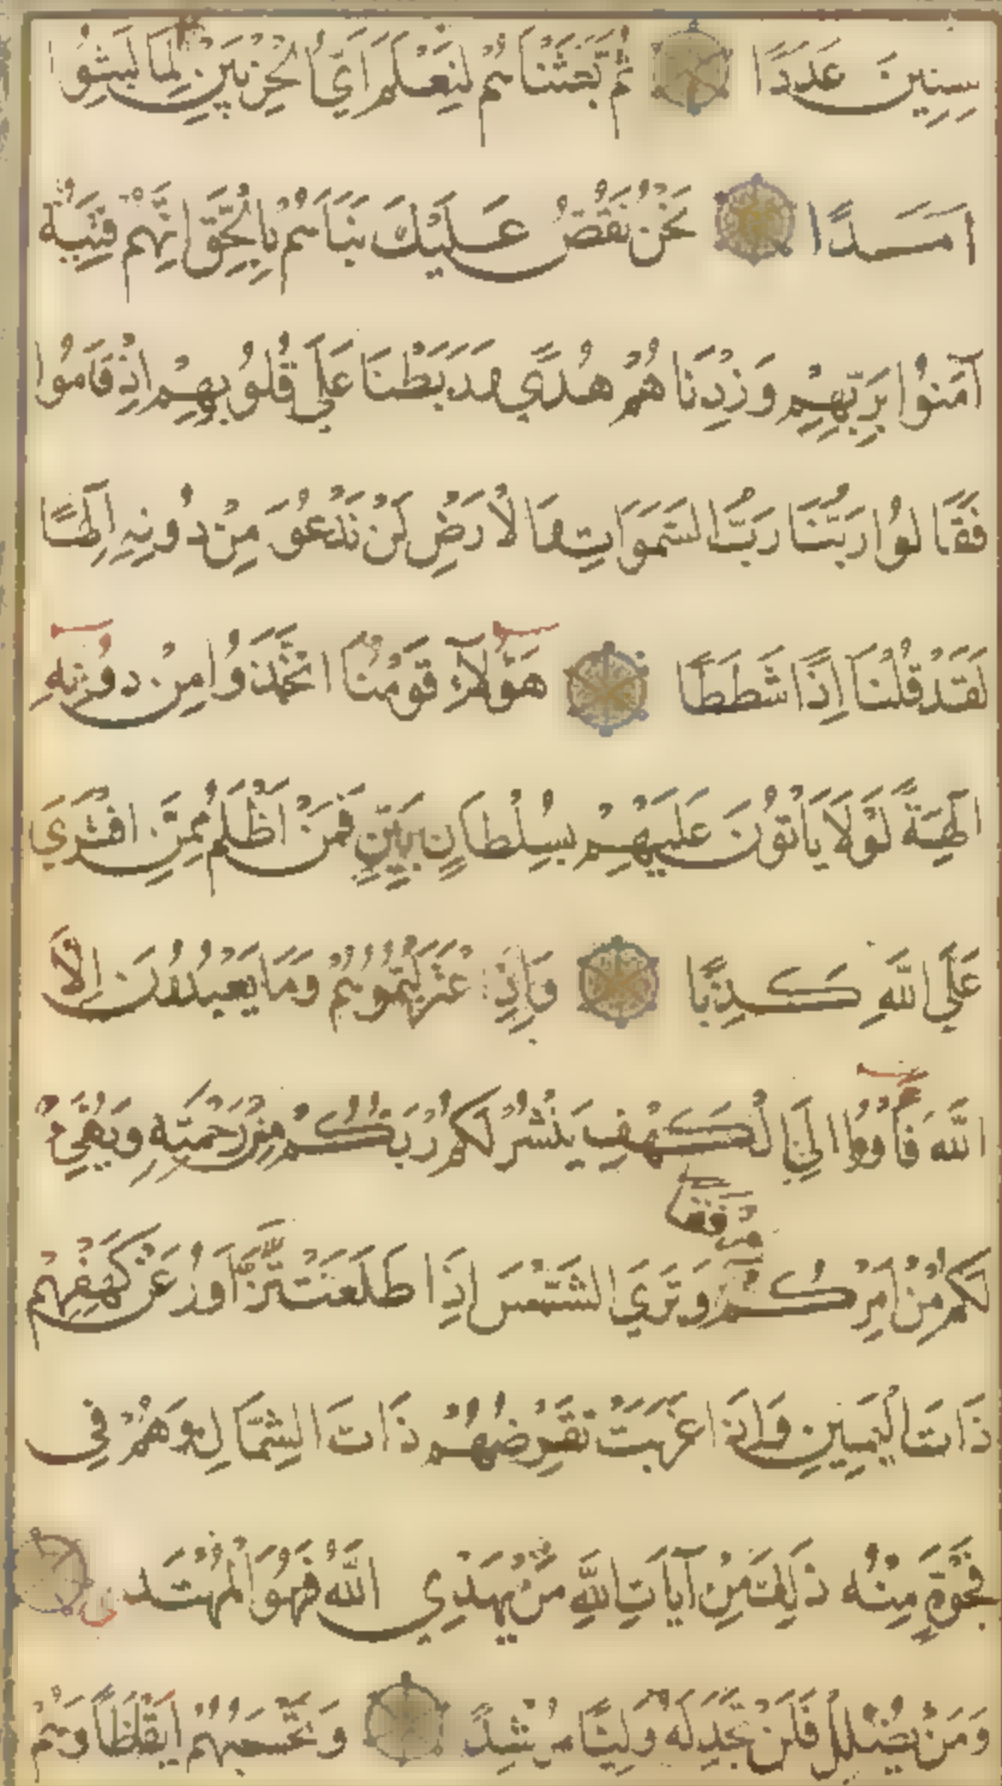 سِنِينَ عَدَدًا ثُمَّ بَعَثْنَاهُمْ لِنَعْلَمَ اَيُّ الْحِزْبَيْنِ لِمَا لَبِثُوا
اَمَدًا نَحْنُ نَقُصُّ عَلَيْكَ نَبَاَهُمْ بِالْحَقِّ اِنَّهُمْ فِتْيَةٌ
آمَنُوا بِرَبِّهِمْ وَزِدْنَاهُمْ هُدًي وَرَبَطْنَا عَلَي قُلُوبِهِمْ اِذْ قَامُوا
فَقَالُوا رَبُّنَا رَبُّ السَّمَوَاتِ وَالْاَرْضِ لَنْ نَدْعُوَ مِنْ دُونِهِ اِلَهًا
لَقَدْ قُلْنَا اِذًا شَطَطًا هَؤُلَآءِ قَوْمُنَا اتَّخَذُوا مِنْ دُونِهِ
اَلِهَةً لَوْلَا يَاْتُونَ عَلَيْهِمْ بِسُلْطَانٍ بَيِّنٍ فَمَنْ اَظْلَمُ مِمَّنِ افْتَرَي
عَلَي اللَّهِ كَذِبًا وَاِذِ عْتَزَلْتُمُوهُمْ وَمَا يَعْبُدُونَ اِلَّا
اللَّهَ فَاْوُوا اِلَي الْكَهْفِ يَنْشُرْ لَكُمْ رَبُّكُمْ مِنْ رَحْمَتِهِ وَيُهَيِّئْ
لَكُمْ مِنْ اَمْرِكُمْ مِرْفَقًا وَتَرَي الشَّمْسَ اِذَا طَلَعَتْ تَزَّاوَرُ عَنْ كَهْفِهِمْ
ذَاتَ الْيَمِينِ وَاِذَا غَرَبَتْ تَقْرِضُهُمْ ذَاتَ الشِّمَالِ وَهُمْ فِي
فَجْوَةٍ مِنْهُ ذَلِكَ مِنْ آيَاتِ اللَّهِ مَنْ يَهْدِي اللَّهُ فَهُوَ الْمُهْتَدِ
وَمَنْ يُضْلِلْ فَلَنْ تَجِدَ لَهُ وَلِيًّا مُرْشِدً وَتَحْسَبُهُمْ اَيْقَاظًا وَهُمْ